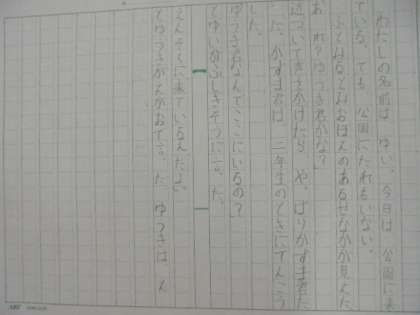 わたしの名前は、ゆい。今日は、公園に来
ている。でも、公園にだれもいない。
ふとみるとみおぼえのあるせなかが見えた
「あ、れ?ゆづき君かな?」
近づいてきさかけたら、や、ぱりかずま君だ
に、かずま君は、二年生のときにてんこう
した。
ゆづきはなんでここにいるの?」
とゆいがふしぎそうに言、た。
えんそくに来ているんだよ。」
とゆづきがえがおで言、た。ゆづきは、